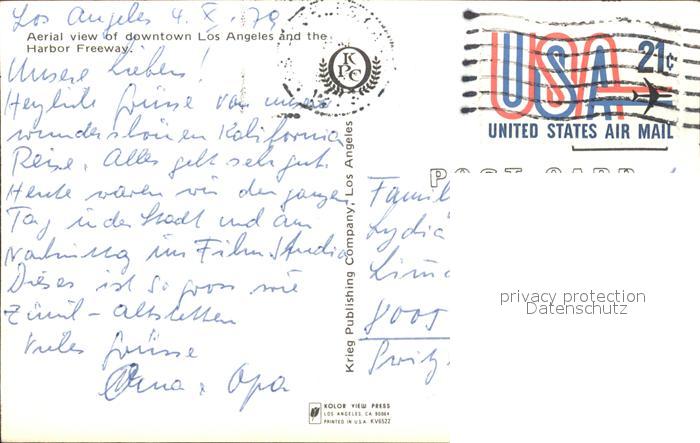 Los Angeles 4. X. 79
Aerial view of downtown Los Angeles and the
Harbor Freeway.
Unsere Lieben!
Herzliche Grüsse von unserer
wunderschönen Kalifornia
Reise. Alles geht sehr gut.
Heute waren wir den ganzen
Tag in der Stadt und am
Nachmittag im Film Studio
Dieses ist so gross wie
Zürich - Altstetten
Viele Grüsse
Oma & Opa
KPC
Krieg Publishing Company, Los Angeles
KOLOR VIEW PRESS
LOS ANGELES, CA 90064
PRINTED IN U.S.A. KV6522
USA 21c
UNITED STATES AIR MAIL
POST CARD
Famil
Lydia
8005
privacy protection
Datenschutz